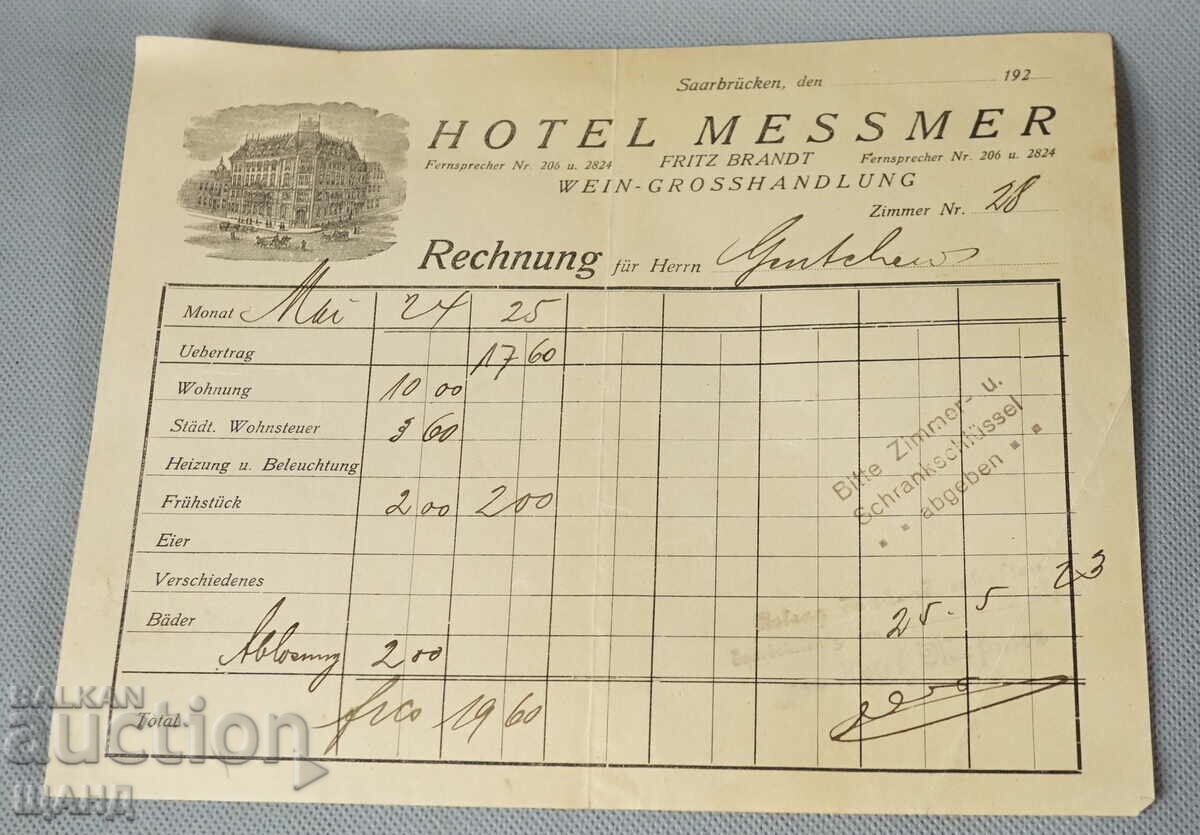 Saarbrücken, den 192
HOTEL MESSMER
Fernsprecher Nr. 206 u. 2824 FRITZ BRANDT Fernsprecher Nr. 206 u. 2824
WEIN-GROSSHANDLUNG
Zimmer Nr. 28
Rechnung für Herrn Gentchew
Monat Mai 24 25
Uebertrag 17 60
Wohnung 10 00
Städt. Wohnsteuer 3 60
Heizung u. Beleuchtung
Frühstück 2 00 2 00
Eier
Verschiedenes
Bäder
Ablösung 2 00
Total frcs 19 60
Bitte Zimmer- u.
Schrankschlüssel
abgeben
25-5 23
BALKAN
auction
ЩАНД